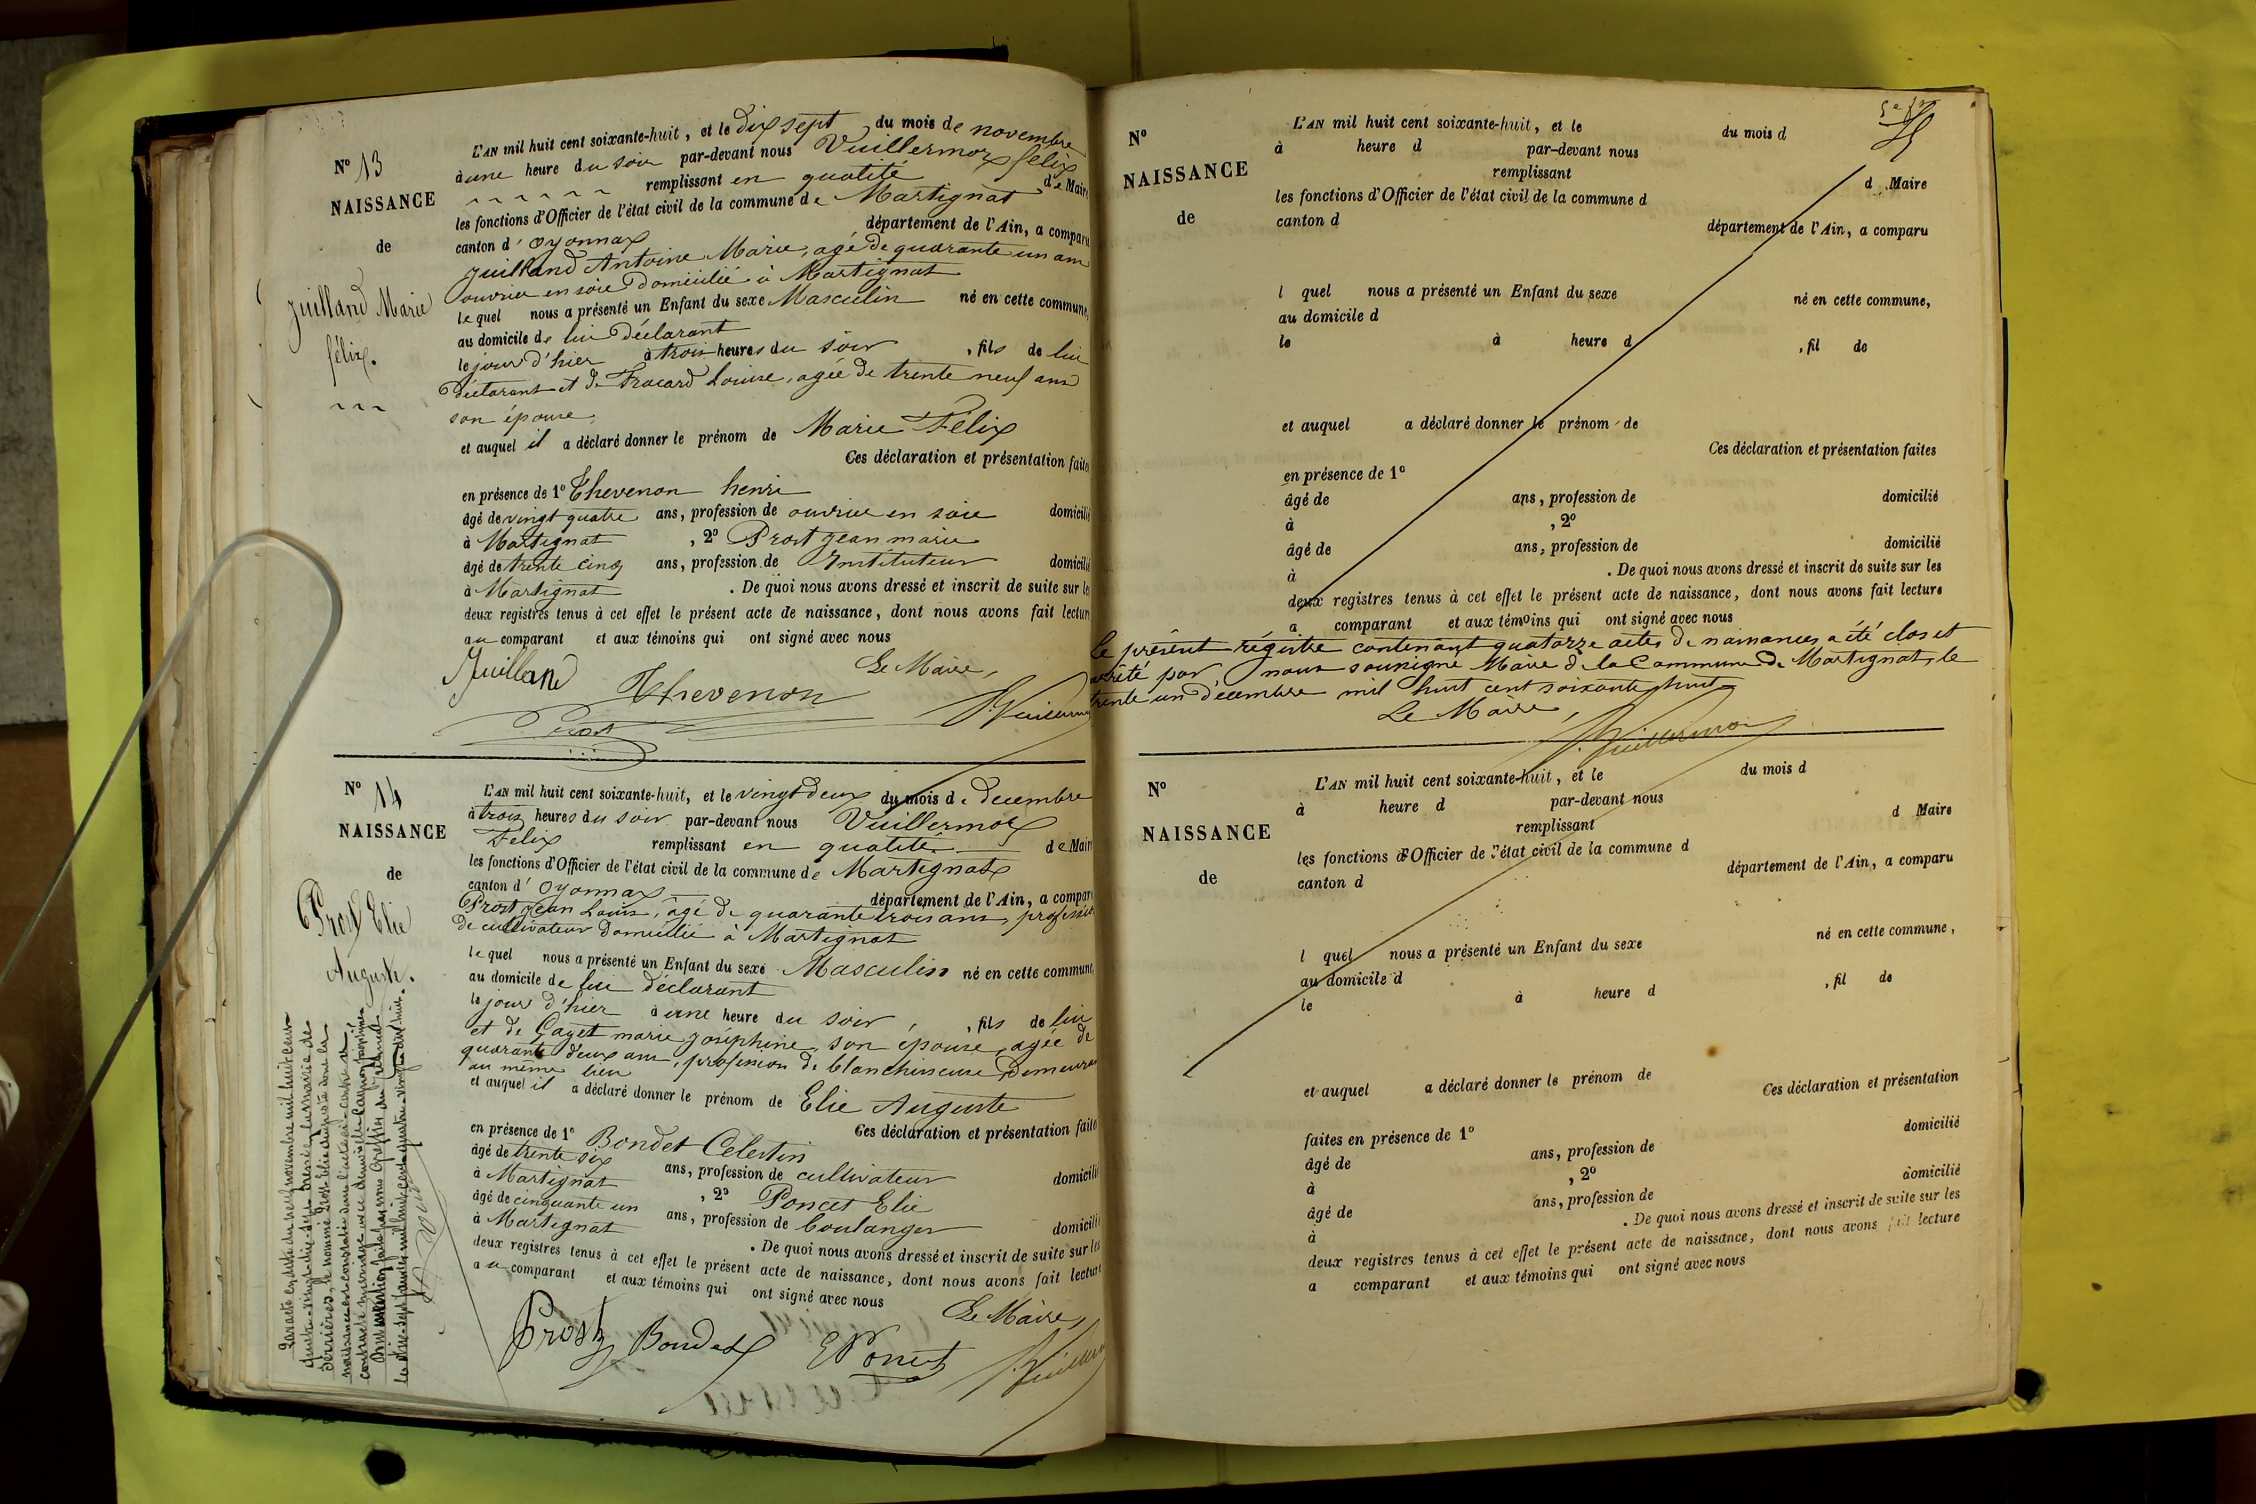 Nº 13
NAISSANCE
de
Juilland Marie
félix.
L'AN mil huit cent soixante-huit, et le dix sept du mois de novembre
à une heure du soir par-devant nous Vuillermoz félix
remplissant en qualité de Maire
les fonctions d'Officier de l'état civil de la commune de Martignat
canton d'oyonnax département de l'Ain, a comparu
Juilland Antoine Marie, agé de quarante un ans
ouvrier en soie domicilié à Martignat
lequel nous a présenté un Enfant du sexe Masculin né en cette commune,
au domicile de lui déclarant
le jour d'hier à trois heures du soir, fils de lui
Déclarant et de Louise, agée de trente neuf ans
son épouse
et auquel il a déclaré donner le prénom de Marie Félix
Ces déclaration et présentation faites
en présence de 1º Thevenon henri
âgé de vingt quatre ans, profession de ouvrier en soie domicilié
à Martignat, 2º Prost jean marie
âgé de trente cinq ans, profession de Instituteur domicilié
à Martignat. De quoi nous avons dressé et inscrit de suite sur les
deux registres tenus à cet effet le présent acte de naissance, dont nous avons fait lecture
au comparant et aux témoins qui ont signé avec nous
Le Maire,
Juilland Thevenon
Prost
Nº 14
NAISSANCE
de
Prost Elie
Auguste.
L'AN mil huit cent soixante-huit, et le vingt deux du mois de decembre
à trois heures du soir par-devant nous Vuillermoz
Felix remplissant en qualité de Maire
les fonctions d'Officier de l'état civil de la commune de Martignat
canton d'oyonnax département de l'Ain, a comparu
Prost Jean Louis, âgé de quarante trois ans, profession
de cultivateur domicilié à Martignat
lequel nous a présenté un Enfant du sexe Masculin né en cette commune,
au domicile de lui déclarant
le jour d'hier à une heure du soir, fils de lui
et de marie joséphine, son épouse, agée de
quarante deux ans, profession de blanchisseuse Demeurant
au même lieu
et auquel il a déclaré donner le prénom de Elie Auguste
Ces déclaration et présentation faites
en présence de 1º Bondet Celestin
âgé de trente six ans, profession de cultivateur domicilié
à Martignat, 2º Poncet Elie
âgé de cinquante un ans, profession de boulanger domicilié
à Martignat. De quoi nous avons dressé et inscrit de suite sur les
deux registres tenus à cet effet le présent acte de naissance, dont nous avons fait lecture
au comparant et aux témoins qui ont signé avec nous
Le Maire,
Prost Bondet EPoncet
Nº
NAISSANCE
de
L'AN mil huit cent soixante-huit, et le du mois d
à heure d par-devant nous
remplissant d Maire
les fonctions d'Officier de l'état civil de la commune d
canton d département de l'Ain, a comparu
l quel nous a présenté un Enfant du sexe né en cette commune,
au domicile d
le à heure d, fil de
et auquel a déclaré donner le prénom de
Ces déclaration et présentation faites
en présence de 1º
âgé de ans, profession de domicilié
à, 2º
âgé de ans, profession de domicilié
à. De quoi nous avons dressé et inscrit de suite sur les
deux registres tenus à cet effet le présent acte de naissance, dont nous avons fait lecture
a comparant et aux témoins qui ont signé avec nous
Le présent régistre contenant quatorze actes de naissances a été clos et
arrêté par nous soussigné Maire de la Commune de Martignat, le
trente un décembre mil huit cent soixante huit
Le Maire,
Nº
NAISSANCE
de
L'AN mil huit cent soixante-huit, et le du mois d
à heure d par-devant nous
remplissant d Maire
les fonctions d'Officier de l'état civil de la commune d
canton d département de l'Ain, a comparu
l quel nous a présenté un Enfant du sexe né en cette commune,
au domicile d
le à heure d, fil de
et auquel a déclaré donner le prénom de
Ces déclaration et présentation
faites en présence de 1º domicilié
âgé de ans, profession de
à, 2º domicilié
âgé de ans, profession de
à. De quoi nous avons dressé et inscrit de suite sur les
deux registres tenus à cet effet le présent acte de naissance, dont nous avons fait lecture
a comparant et aux témoins qui ont signé avec nous